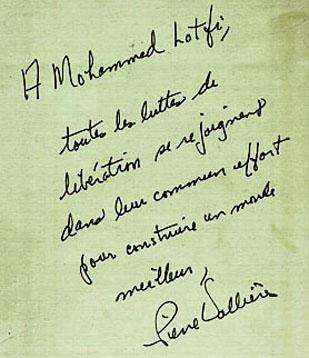 A Mohammed Lotfi,
toutes les luttes de
libération se rejoignent
dans leur commun effort
pour construire un monde
meilleur,
Pierre Vallières